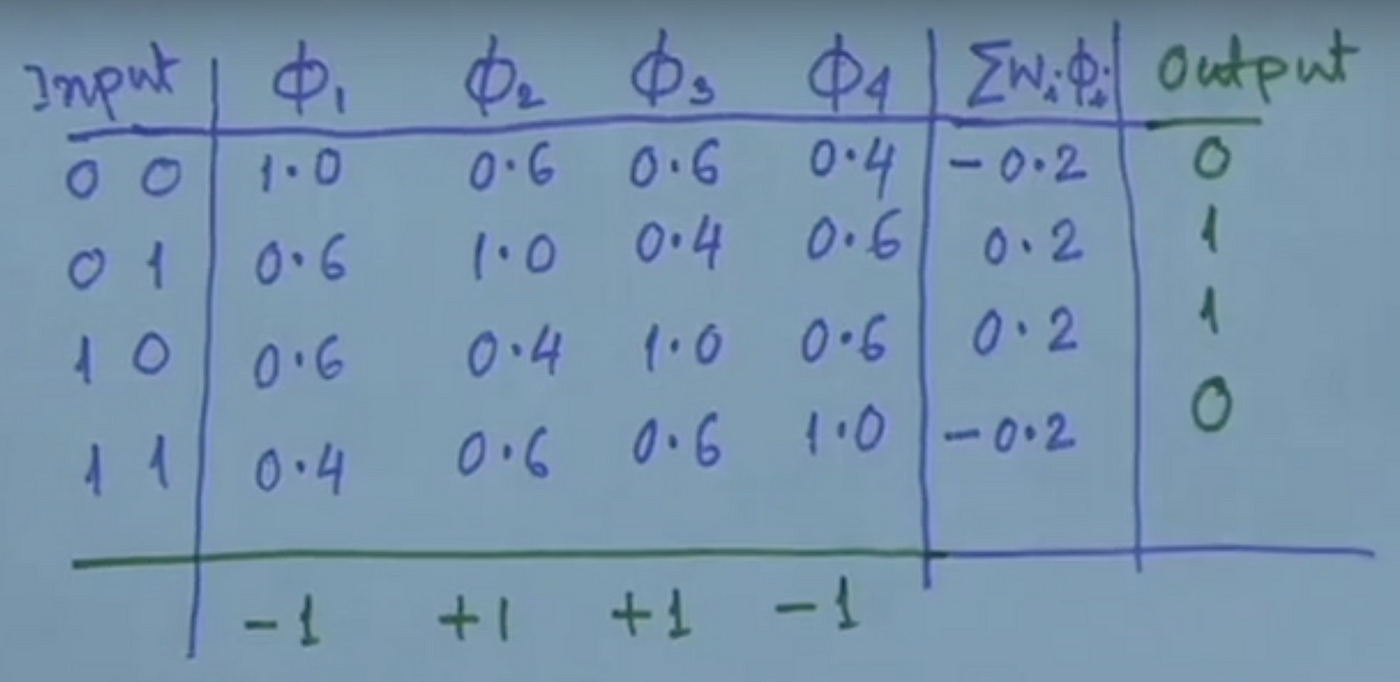 Input ϕ₁ ϕ₂ ϕ₃ ϕ₄ ΣWᵢϕᵢ Output
0 0 1.0 0.6 0.6 0.4 -0.2 0
0 1 0.6 1.0 0.4 0.6 0.2 1
1 0 0.6 0.4 1.0 0.6 0.2 1
1 1 0.4 0.6 0.6 1.0 -0.2 0
-1 +1 +1 -1